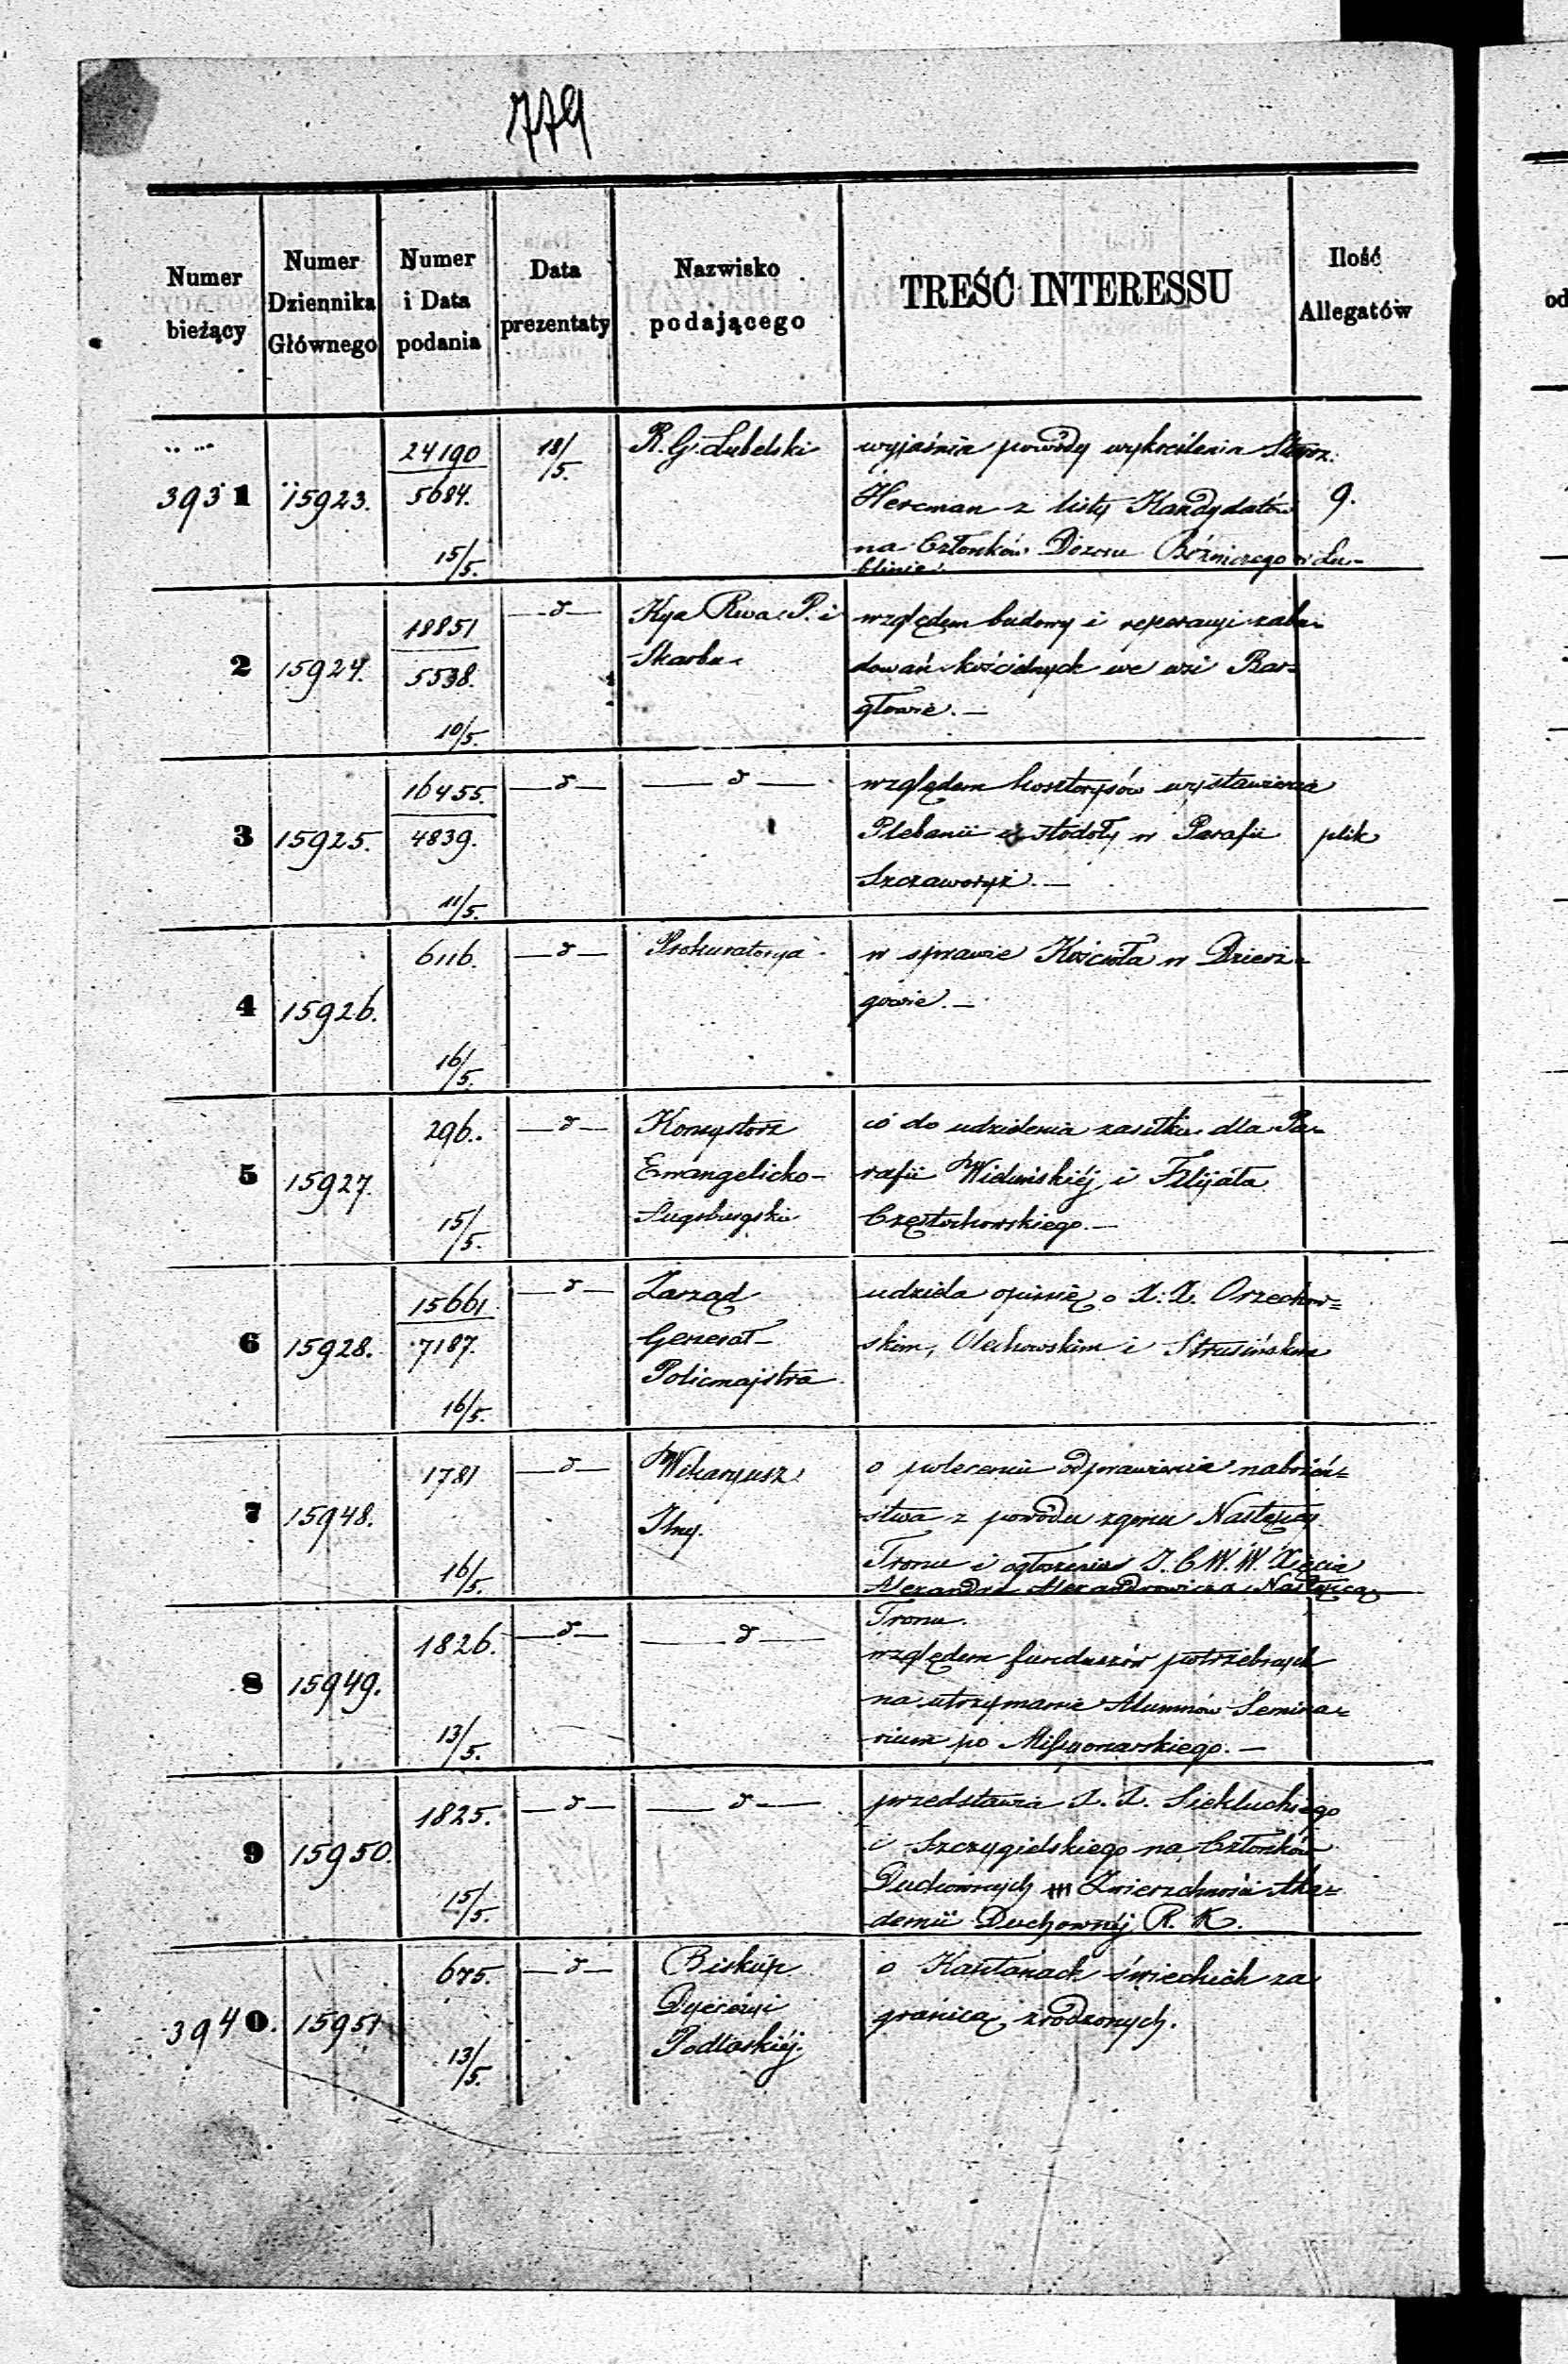 779
Numer bieżący | Numer Dziennika Głównego | Numer i Data podania | Data prezentaty | Nazwisko podającego | TREŚĆ INTERESSU | Ilość Allegatów
3931 | 15923. | 24190 / 5684. 15/5. | 18/5. | R. G. Lubelski | wyjaśnia powody wykreślenia
Hercman z listy Kandydatów | 9.
na Członków Dozoru Bóżniczego w Lu-
blinie.
2 | 15924. | 18851 / 5538. 10/5. | —d— | Kya Rwa P. i | względem budowy i reperacyi zabu-
Skarbu | dowań kościelnych we wsi Bar-
głowie.—
3 | 15925. | 16455. / 4839. 11/5. | —d— | —d— | względem kosztorysów wystawienia
Plebanii i stodoły w Parafii | plik
Szczaworyż.—
4 | 15926. | 6116. 16/5. | —d— | Prokuratorya | w sprawie Kościoła w Dzierz-
gowie.—
5 | 15927. | 296. 15/5. | —d— | Konsystorz | co do udzielenia zasiłku dla Pa-
Ewangelicko- | rafii Wieluńskiéj i Filijału
Augsburgski | Częstochowskiego.—
6 | 15928. | 15661 / 7187. 16/5. | —d— | Zarząd | udziela opinię o X.X. Orzechow-
Generał- | skim, Olechowskim i Strusińskim
Policmajstra
7 | 15948. | 1781 16/5. | —d— | Wikaryusz | o poleceniu odprawienia nabożeń-
stwa z powodu zgonu Następcy
Tronu i ogłoszenia J. C. W. W. Xięcia
Alexandra Alexandrowicza Następcą
Tronu.
8 | 15949. | 1826. 13/5. | —d— | —d— | względem funduszów potrzebnych
na utrzymanie Alumnów Semina-
rium po Missyonarskiego.—
9 | 15950. | 1825. 15/5. | —d— | —d— | przedstawia X. X. Siekluckiego
i Szczygielskiego na Członków
Duchownych Zwierzchności Aka-
demii Duchownéj R. K.
3940. | 15951 | 675. 13/5. | —d— | Biskup | o Kapłanach świeckich za
Dyecezyi | granicą zrodzonych.
Podlaskiéj.